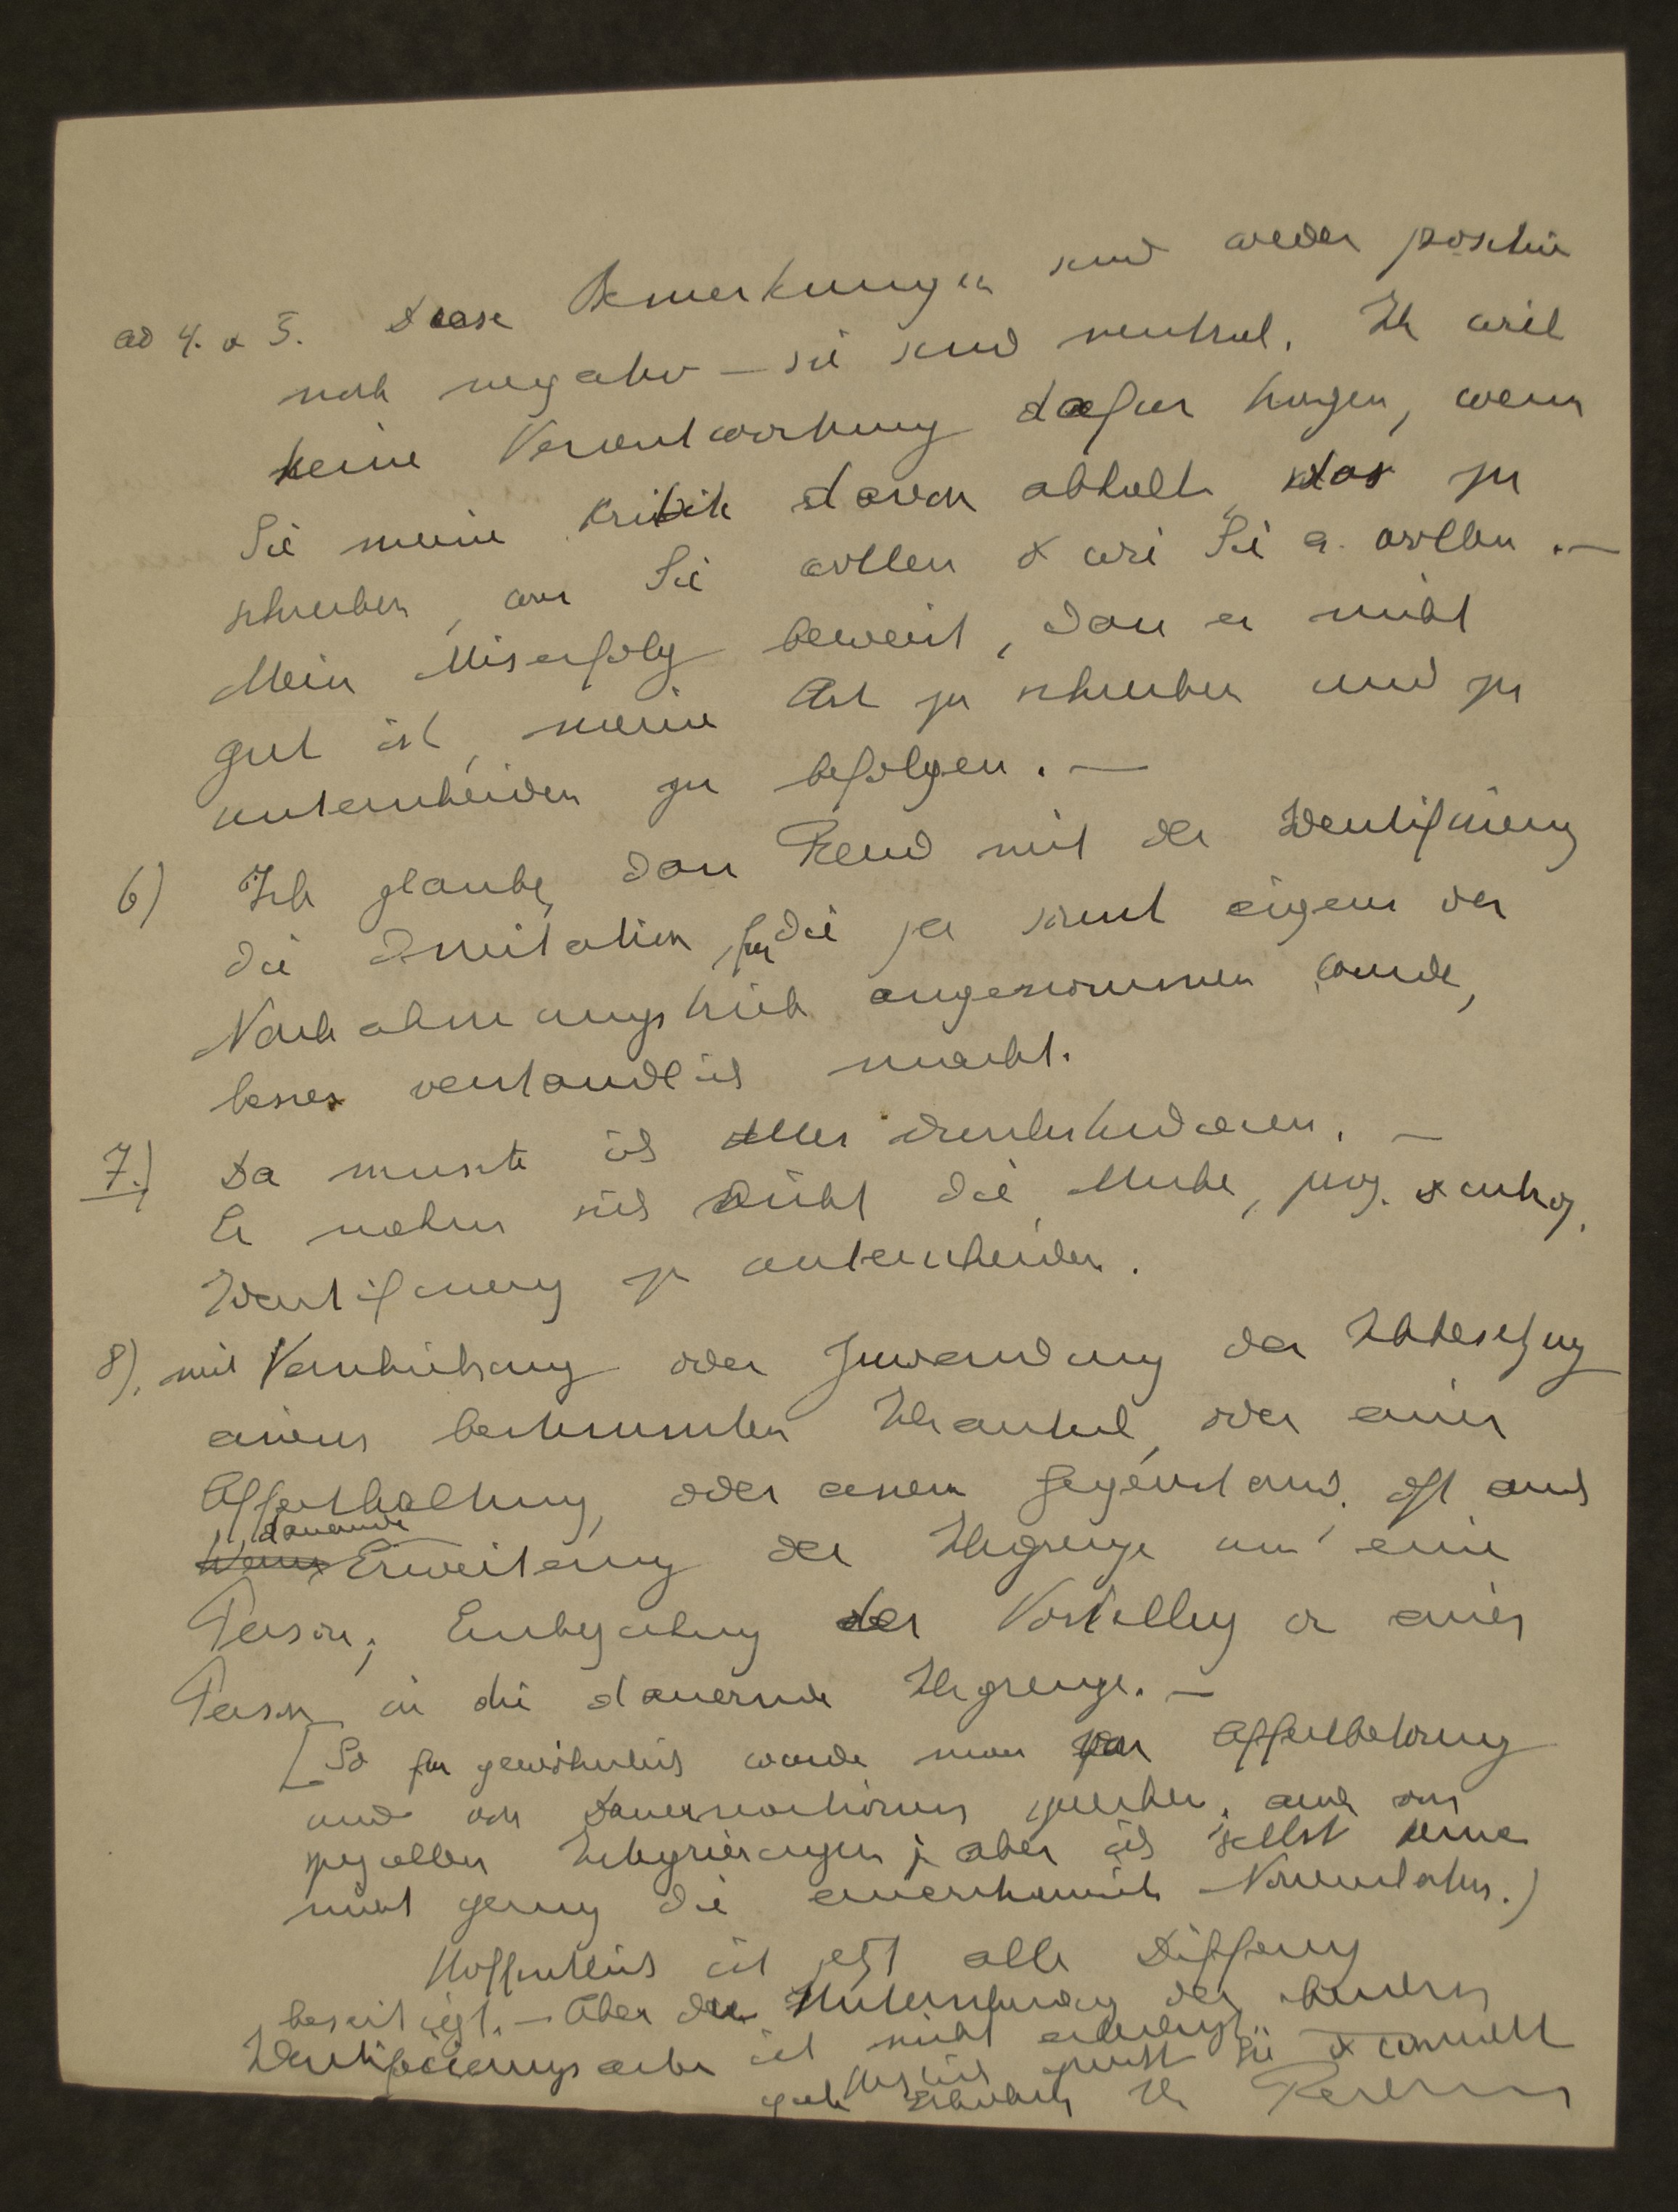 ad 4. & 5. Diese Bemerkungen sind weder positiv
noch negativ – sie sind neutral. Ich will
keine Verantwortung dafur tragen, wenn
Sie meine Kritik davon abhalt, das zu
schreiben, was Sie wollen & wie Sie es wollen. –
Mein Miserfolg beweist, dass es nicht
gut ist, meine Art zu schreiben und zu
unterscheiden zu befolgen. –
6) Ich glaube, dass Freud mit der Identifizierung
die Imitation, fur die ja sonst eigens der
Nachahmungstrieb angenommen wurde,
besser verstandlich macht.
7.) Da musste ich alles wiederholen. –
Er nahm sich nicht die Muhe, proj. &
Identifizierung zu unterscheiden.
8). mit oder Zuwendung der Ichbesetzung
eines bestimmten Ichanteil, oder einer
Affekthaltung, oder einem Gegenstand. oft auch
dauernde
Erweiterung der Ichgrenze um eine
Person; Einbeziehung der Vorstellung einer
Person in die dauernde Ichgrenze. –
[So fur gewöhnlich wurde man von Affektbetonung
und von sprechen, auch von
speziellen Integrierungen; aber ich selbst kenne
nicht genug die amerikanische Nomenklatur.)
Hoffentlich ist jetzt alle Differenz
beseitigt. – Aber die Untersuchung der
Identifizierungsarten ist nicht erledigt.
Herzlich grusst Sie & wunscht
gute Ihr Federn